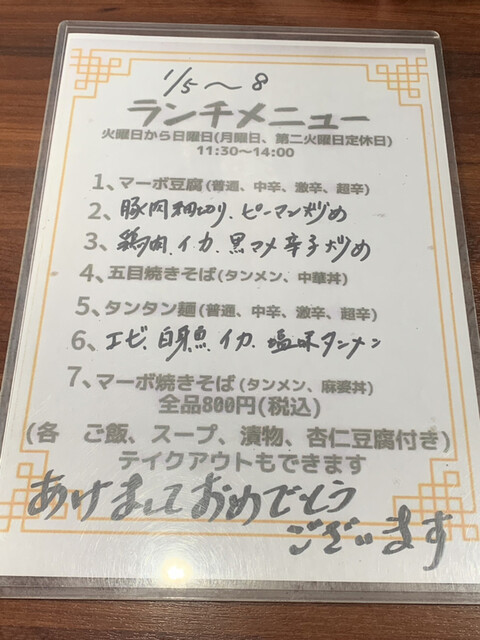 1/5〜8
ランチメニュー
火曜日から日曜日(月曜日、第二火曜日定休日)
11:30〜14:00
1、マーボ豆腐(普通、中辛、激辛、超辛)
2、豚肉細切り、ピーマン炒め
3、鶏肉、イカ、黒マメ辛子炒め
4、五目焼きそば(タンメン、中華丼)
5、タンタン麺(普通、中辛、激辛、超辛)
6、エビ、白身魚、イカ、塩味タンメン
7、マーボ焼きそば(タンメン、麻婆丼)
全品800円(税込)
(各 ご飯、スープ、漬物、杏仁豆腐付き)
テイクアウトもできます
あけましておめでとう
ございます